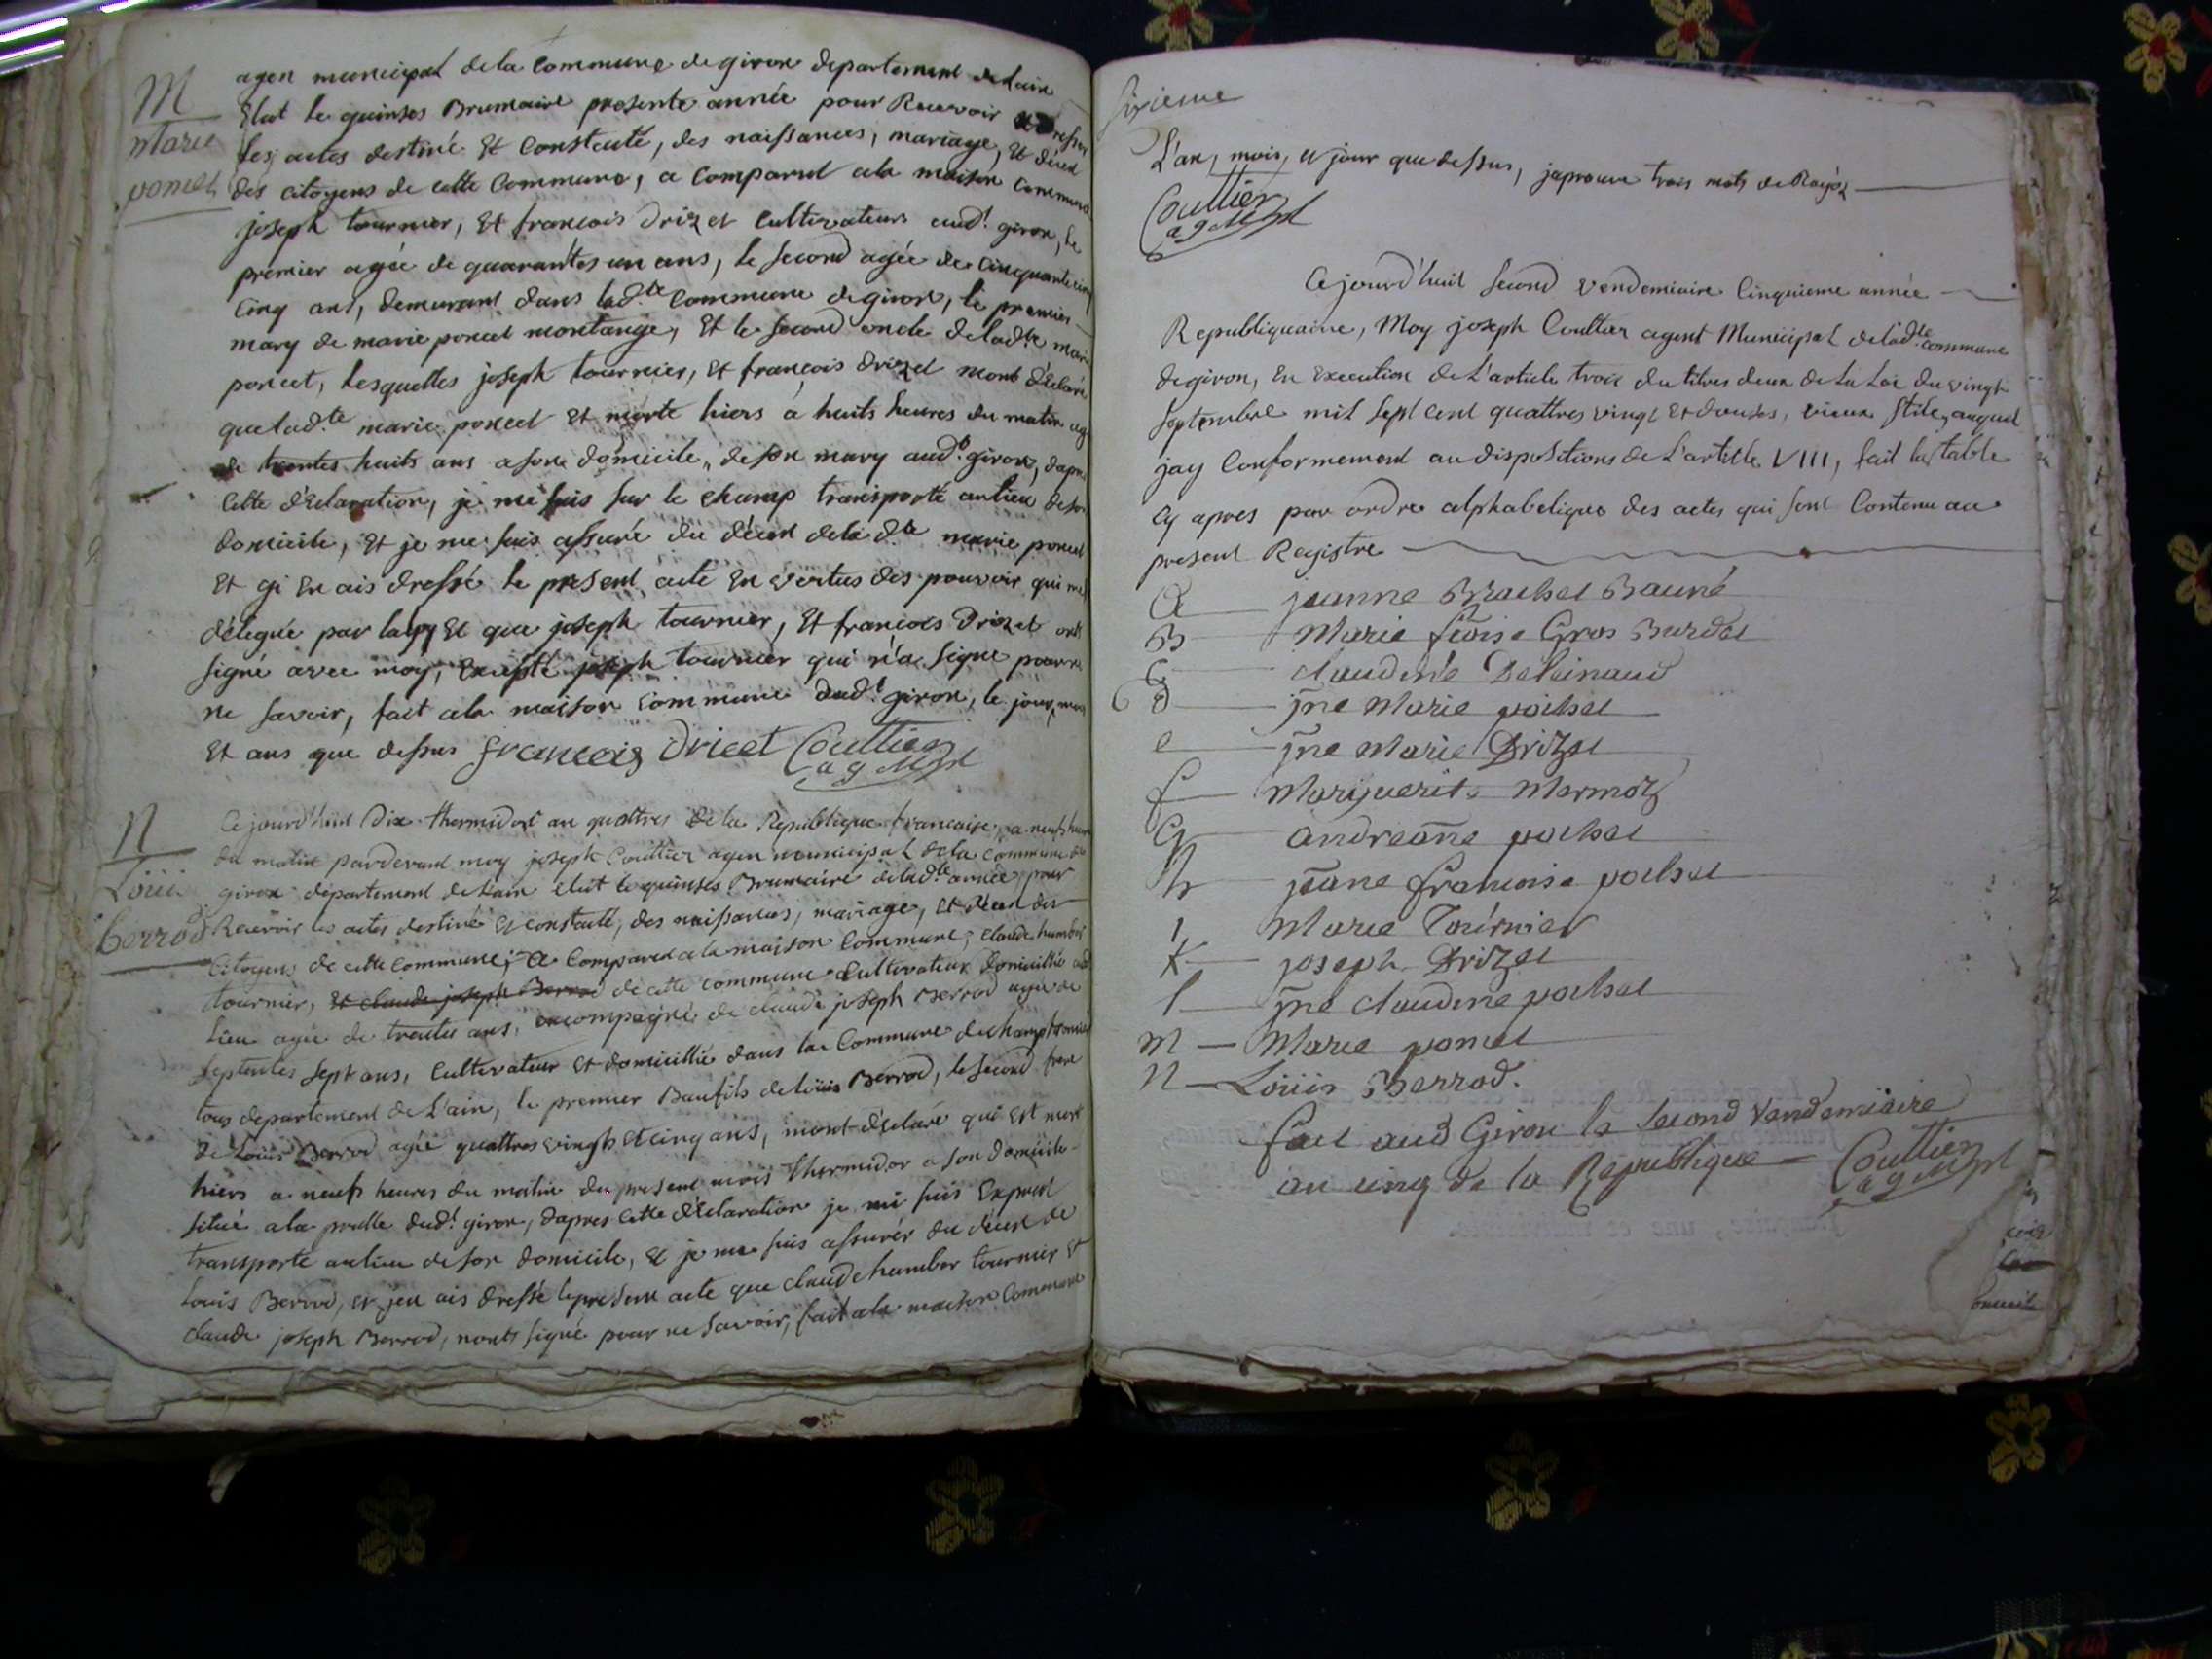 M
Marie
poncet
agen municipal de la Commune de giron departement de Lain
Elut le quinses Brumaire presente année pour Recevoir
les actes destiné Et Constaté, des naissances, mariage, Et déced
des citoyens de cette Commune, a Comparut a la maison Commune
joseph tournier, Et francois Drizet Cultivateurs aud.t giron, le
premier agée de quarantes un ans, le second agée de Cinquante cinq
Cinq ans, demurant dans lad.te Commune de giron, le premier
mary de marie poncet montange, Et le second oncle de lad.te marie
poncet, Lesquelles joseph tournier, Et françois drizet mont déclaré
que lad.te marie poncet Et morte hiers a huits heures du matin agé
de trentes huits ans a son domicile, de son mary aud.t giron, dapré
Cette déclaration, je me suis sur le champ transporté au lieu de son
domicile, Et je me suis assuré du déced de la d.te marie poncet
Et gi En ais dressé le present acte En vertus des pouvoir qui me
délégué par la loy Et que joseph tournier, Et francois Drizet onts
signé avec moy, Excepté joseph tournier qui n'a signe pour ne
ne savoir, fait a la maison Commune dud.t giron, le jour, mois
Et ans que dessus francois Dricet Couttier
ag Mpl
N
Loüis
Berrod
Ce jourd'huit Dix thermidort an quattres de la Republique francaise, a neufs heures
du matin pardevant moy joseph Couttier agen municipal de la Commune de
giron departement de Lain elut le quinses Brumaire de lad.te année pour
Recevoir les actes destiné Et constaté, des naissances, mariage, Et déced des
Citoyens de cette commune, a Comparu a la maison Commune, claude humber
tournier, Et claude joseph Berrod de cette commune Cultivateur domicillié aud
Lieu agée de trentes ans, accompagné de claude joseph Berrod agée de
septentes sept ans, Cultivateur Et domicillié dans la Commune de champfromier
tous departement de L'ain, le premier Baufils de loüis Berrod, le second frere
de Loüis Berrod agée quattres vingts Et cinq ans, mont déclaré qui Est mort
hiers a neufs heures du matin du present mois thermidor a son domicile
situé a la prulle dud.t giron, dapres Cette déclaration je mi suis Expret
transporte au lieu de son domicile, Et je me suis assurér du déced de
Louis Berrod, Et jen ais dressé le present acte que claude humber tournier Et
claude joseph Berrod, nonts signé pour ne savoir, fait a la maison Commune
sixieme
L'an, mois, et jour que dessus, japrouve trois mots de Rayéz
Couttier
ag Mpl
Cejourd'huit second vendemiaire Cinquieme année
Republiquaine, Moy joseph Couttier agent Municipal de lad.te commune
de giron, En Execution de L'article trois du titres deux de La Loi du vingt
septembre mil sept cent quattres vingt Et douses, vieux stile, auquel
jay Conformement au dispositions de L'article VIII, fait la table
Cy apres par ordre alphabetique des actes qui sont Contenu au
present Registre
A jeanne Brachet Bauné
B Marie fcoise Gros Burdet
C claudine Delainaud
d jne Marie pochet
e jne Marie Drizet
f Marguerite Mermoz
G andreane pochet
h jeane francoise pochet
I Marie Tournier
K joseph Drizet
l jne claudine pochet
M Marie poncet
N Loüis Berrod.
fait aud Giron le second Vendemiaire
an cinq de la Republique Couttier
ag Mpl